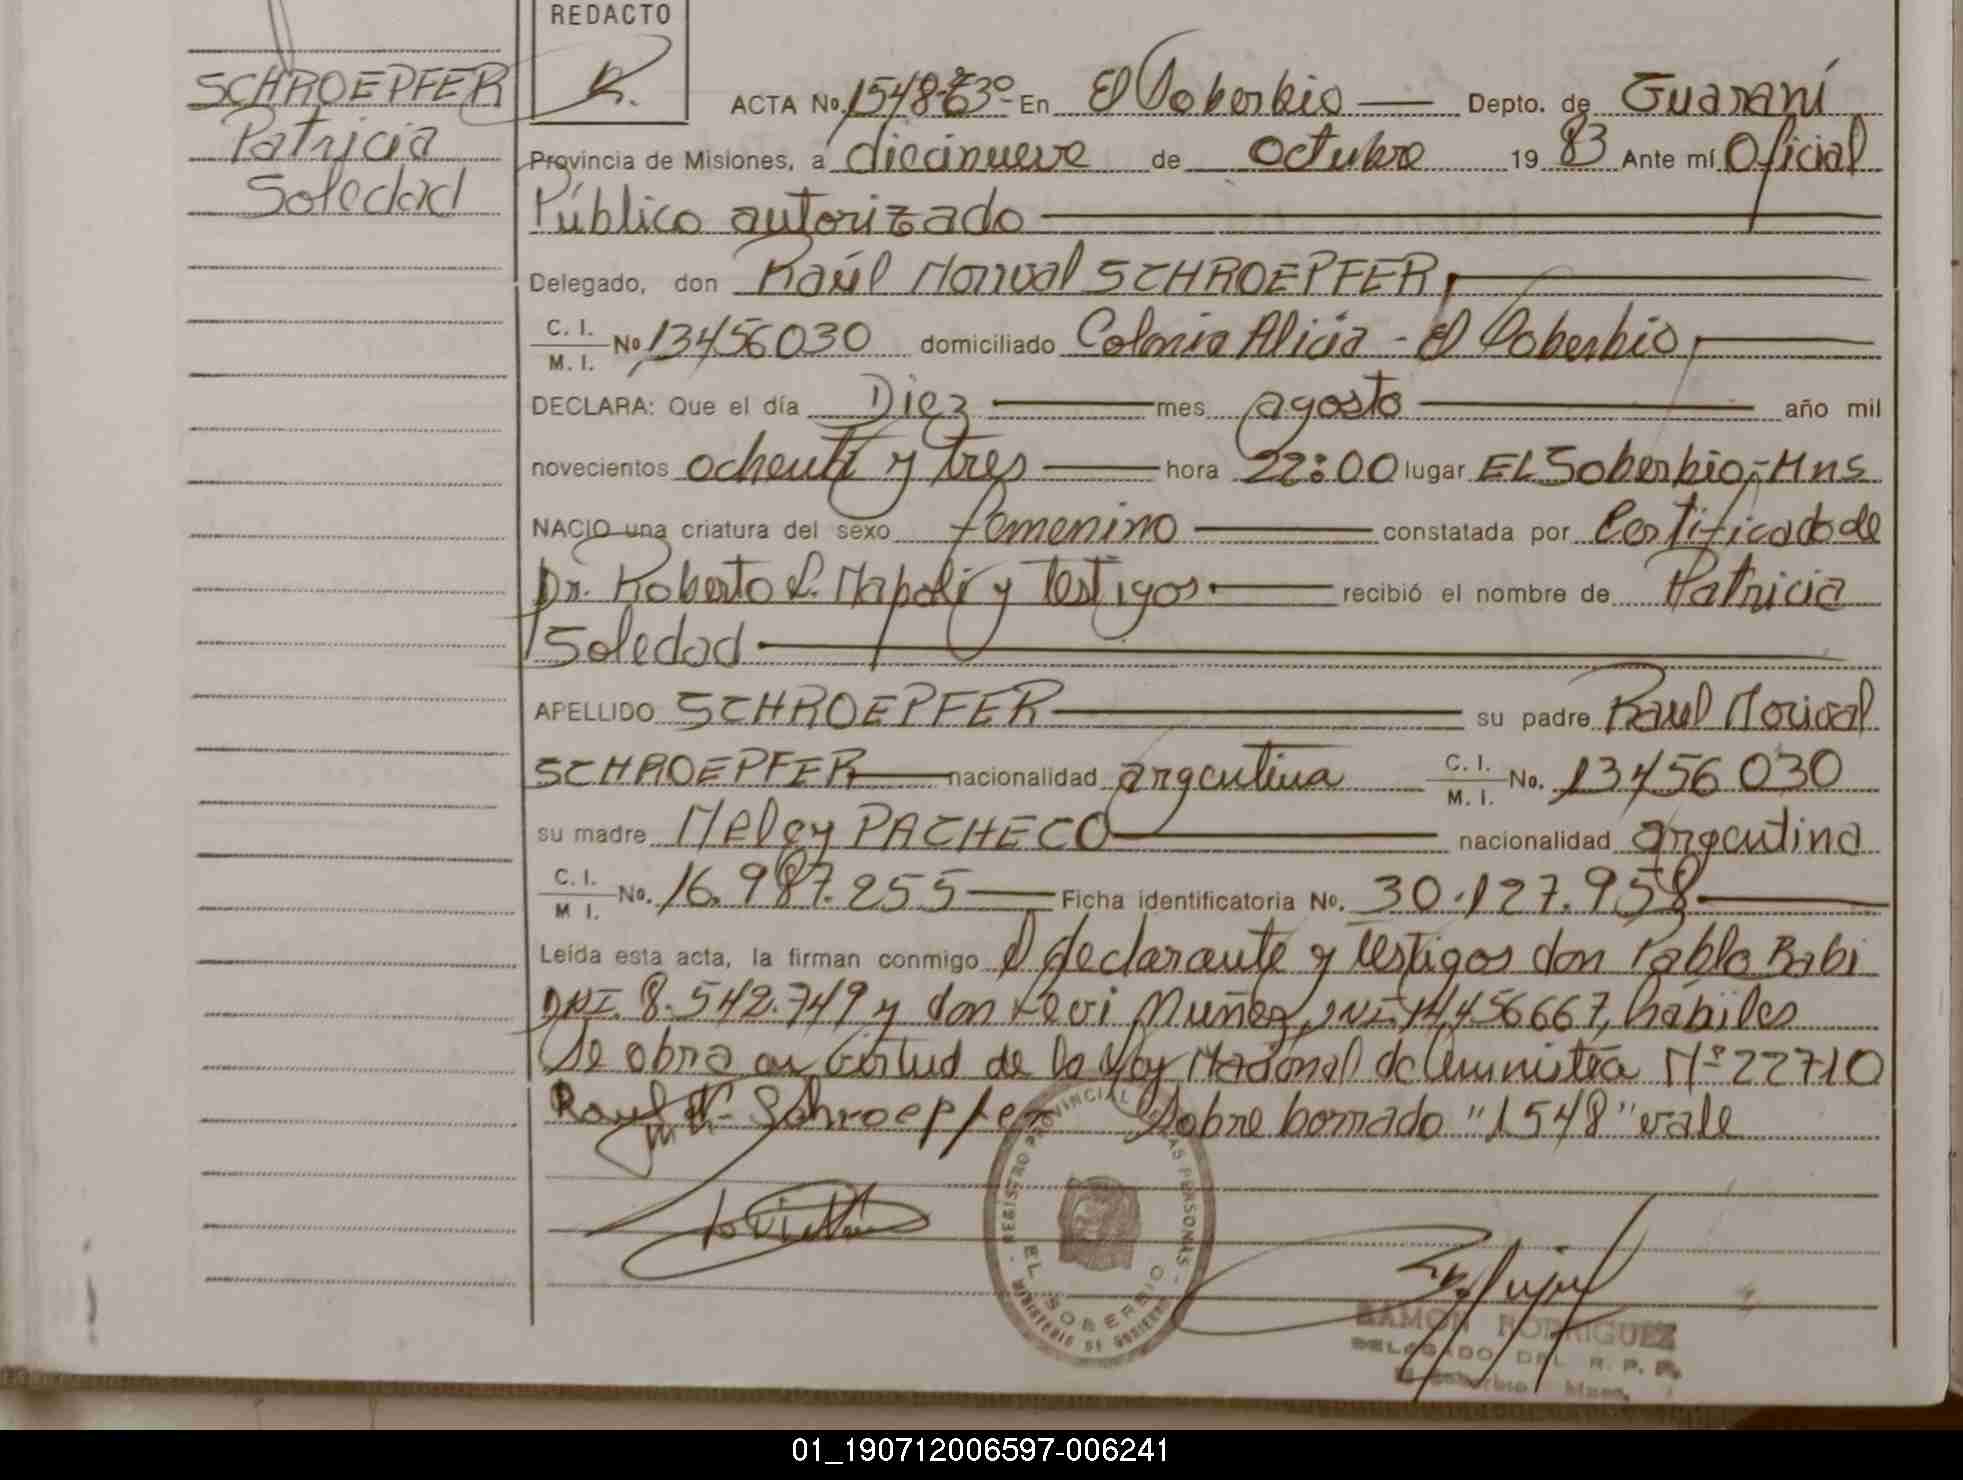 REDACTO
SCHROEPFER
Patricia
Soledad
ACTA No. 1548-T3º- En El Soberbio Depto. de Guaraní
Provincia de Misiones, a diecinueve de Octubre 19 83 Ante mí Oficial
Público autorizado
Delegado, don Raúl Norival SCHROEPFER,
C. I. / M. I. No 13456030 domiciliado Colonia Alicia - El Soberbio,
DECLARA: Que el día Diez mes agosto año mil
novecientos ochenta y tres hora 22:00 lugar EL Soberbio, Mns
NACIO una criatura del sexo femenino constatada por Certificado de
Dr. Roberto L. Napoli y testigos. recibió el nombre de Patricia
Soledad
APELLIDO SCHROEPFER su padre Raul Norival
SCHROEPFER nacionalidad argentina C. I. / M. I. No. 13456030
su madre Neley PACHECO nacionalidad argentina
C. I. / M I. No. 16.987.255 Ficha identificatoria No. 30.127.958
Leída esta acta, la firman conmigo el declarante y testigos don Pablo Babi
DNI. 8.542.749 y don Levi Muñez, DNI 14,456667, hábiles
Se obra en virtud de la Ley Nacional de Amnistía Nº 22710
Raul N. Schroepfer Sobre borrado "1548" vale
REGISTRO PROVINCIAL DE LAS PERSONAS
EL SOBERBIO
MINISTERIO DE GOBIERNO
RAMON RODRIGUEZ
DELEGADO DEL R. P. P.
El Soberbio Mnes.
01_190712006597-006241